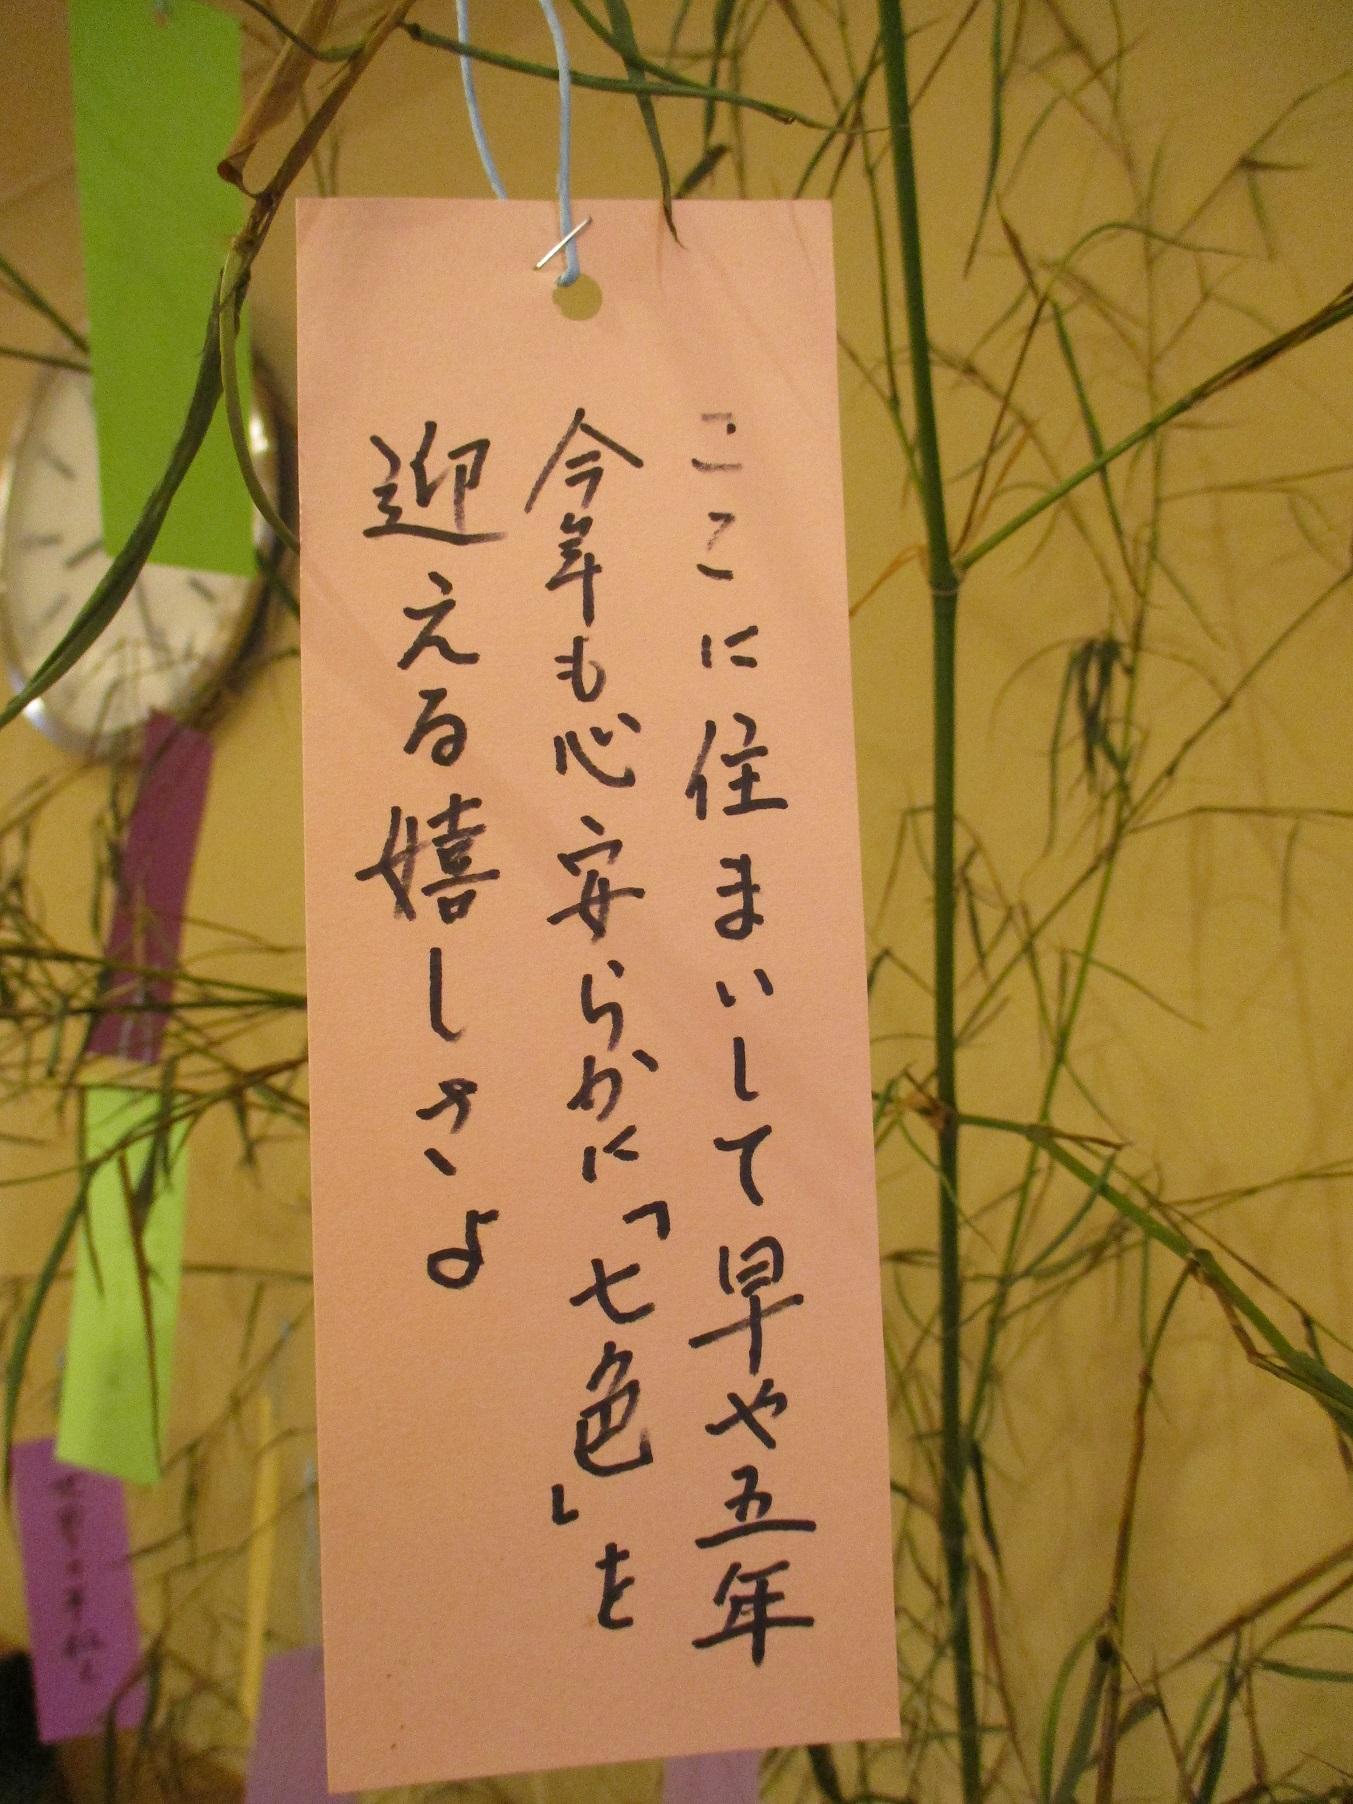 ここに住まいして早や五年
今年も心安らかに「七色」を
迎える嬉しさよ